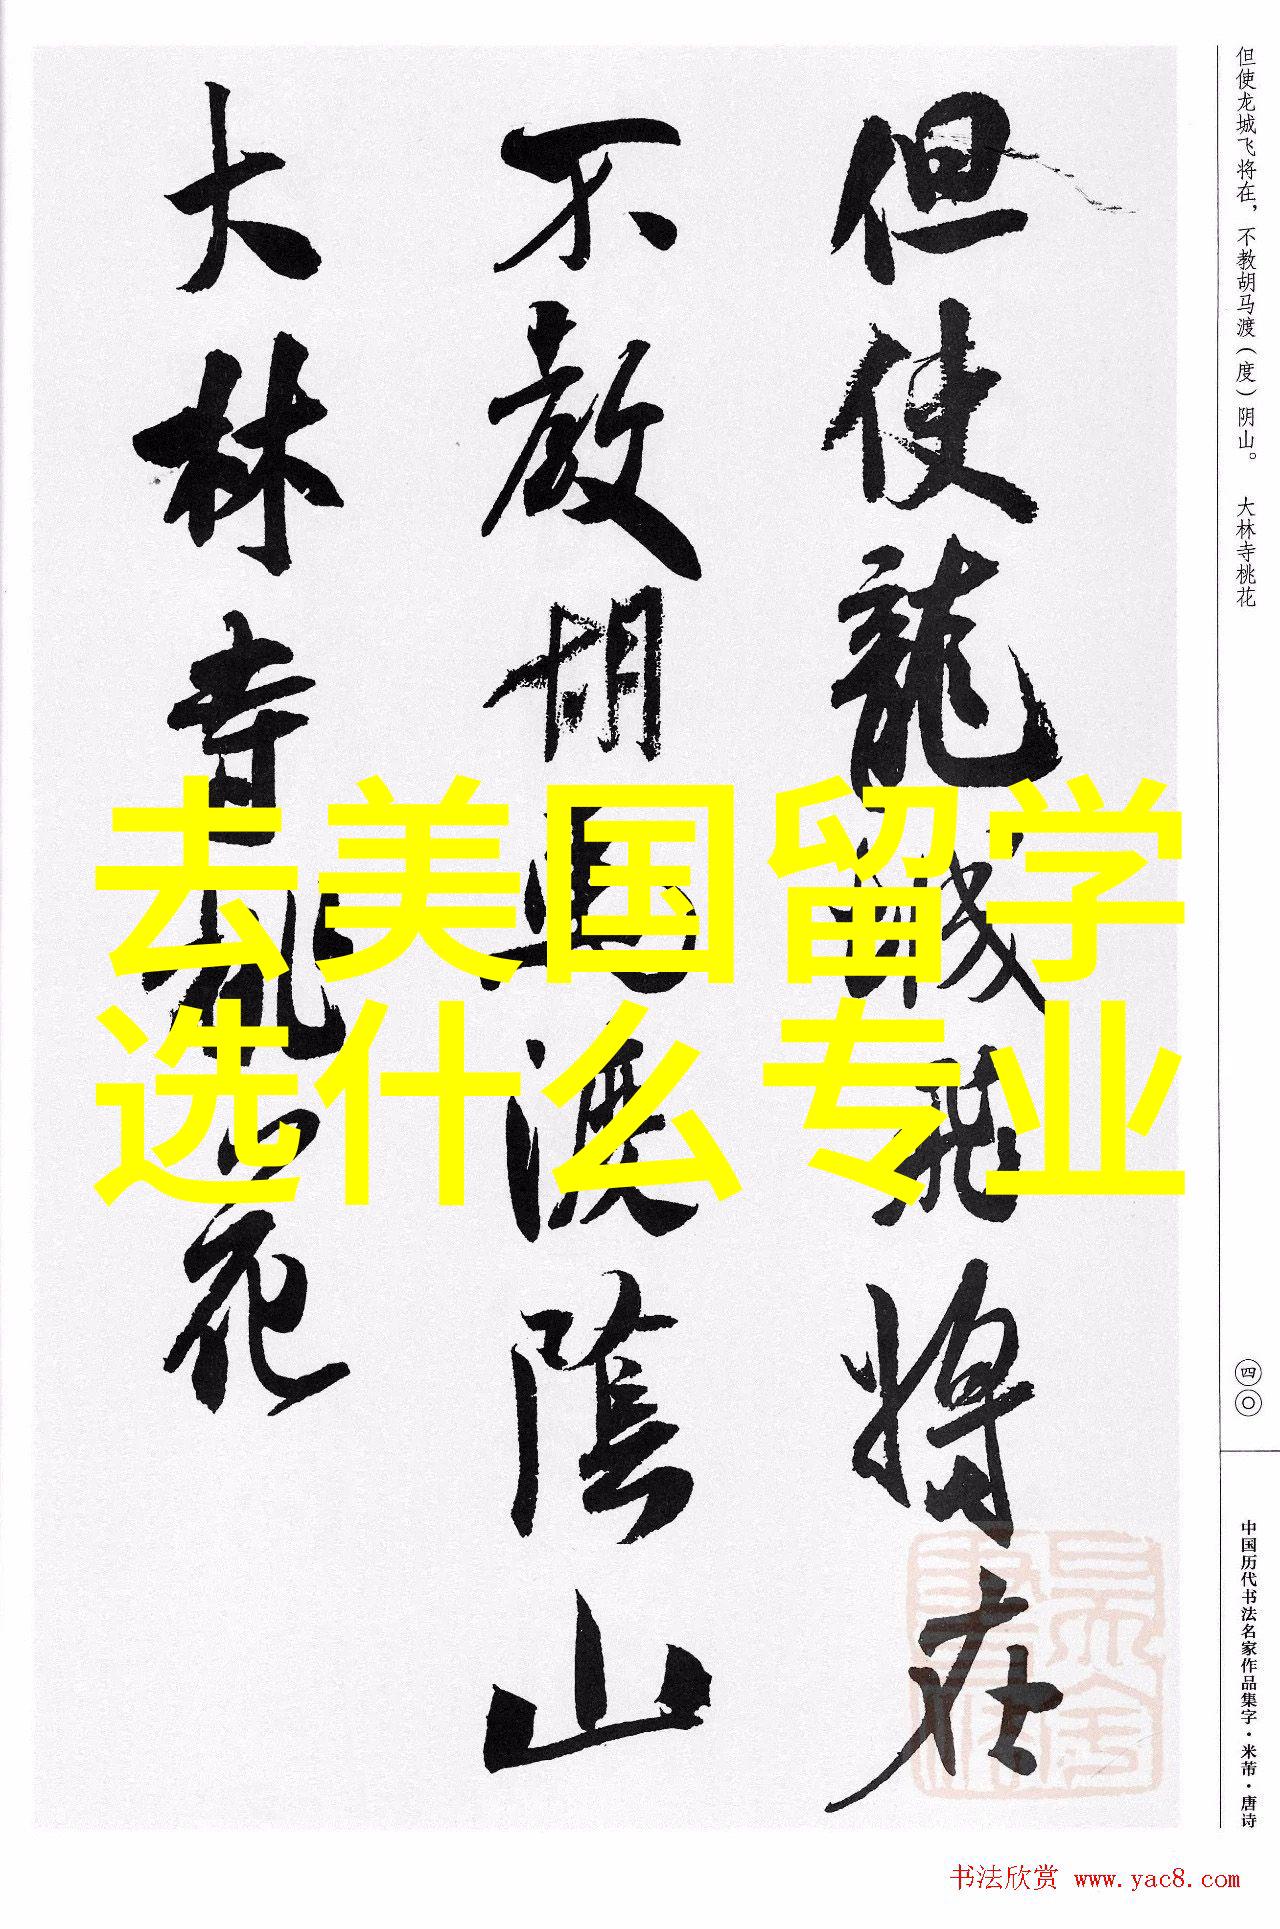 但使龙城飞将在，不教胡马渡（度）阴山。 大林寺桃花
但使龍城飛将在
不教胡馬渡陰山
大林寺桃花
去美国留学
选什么专业
四〇
中国历代书法名家作品集字·米芾·唐诗
书法欣赏 www.yac8.com